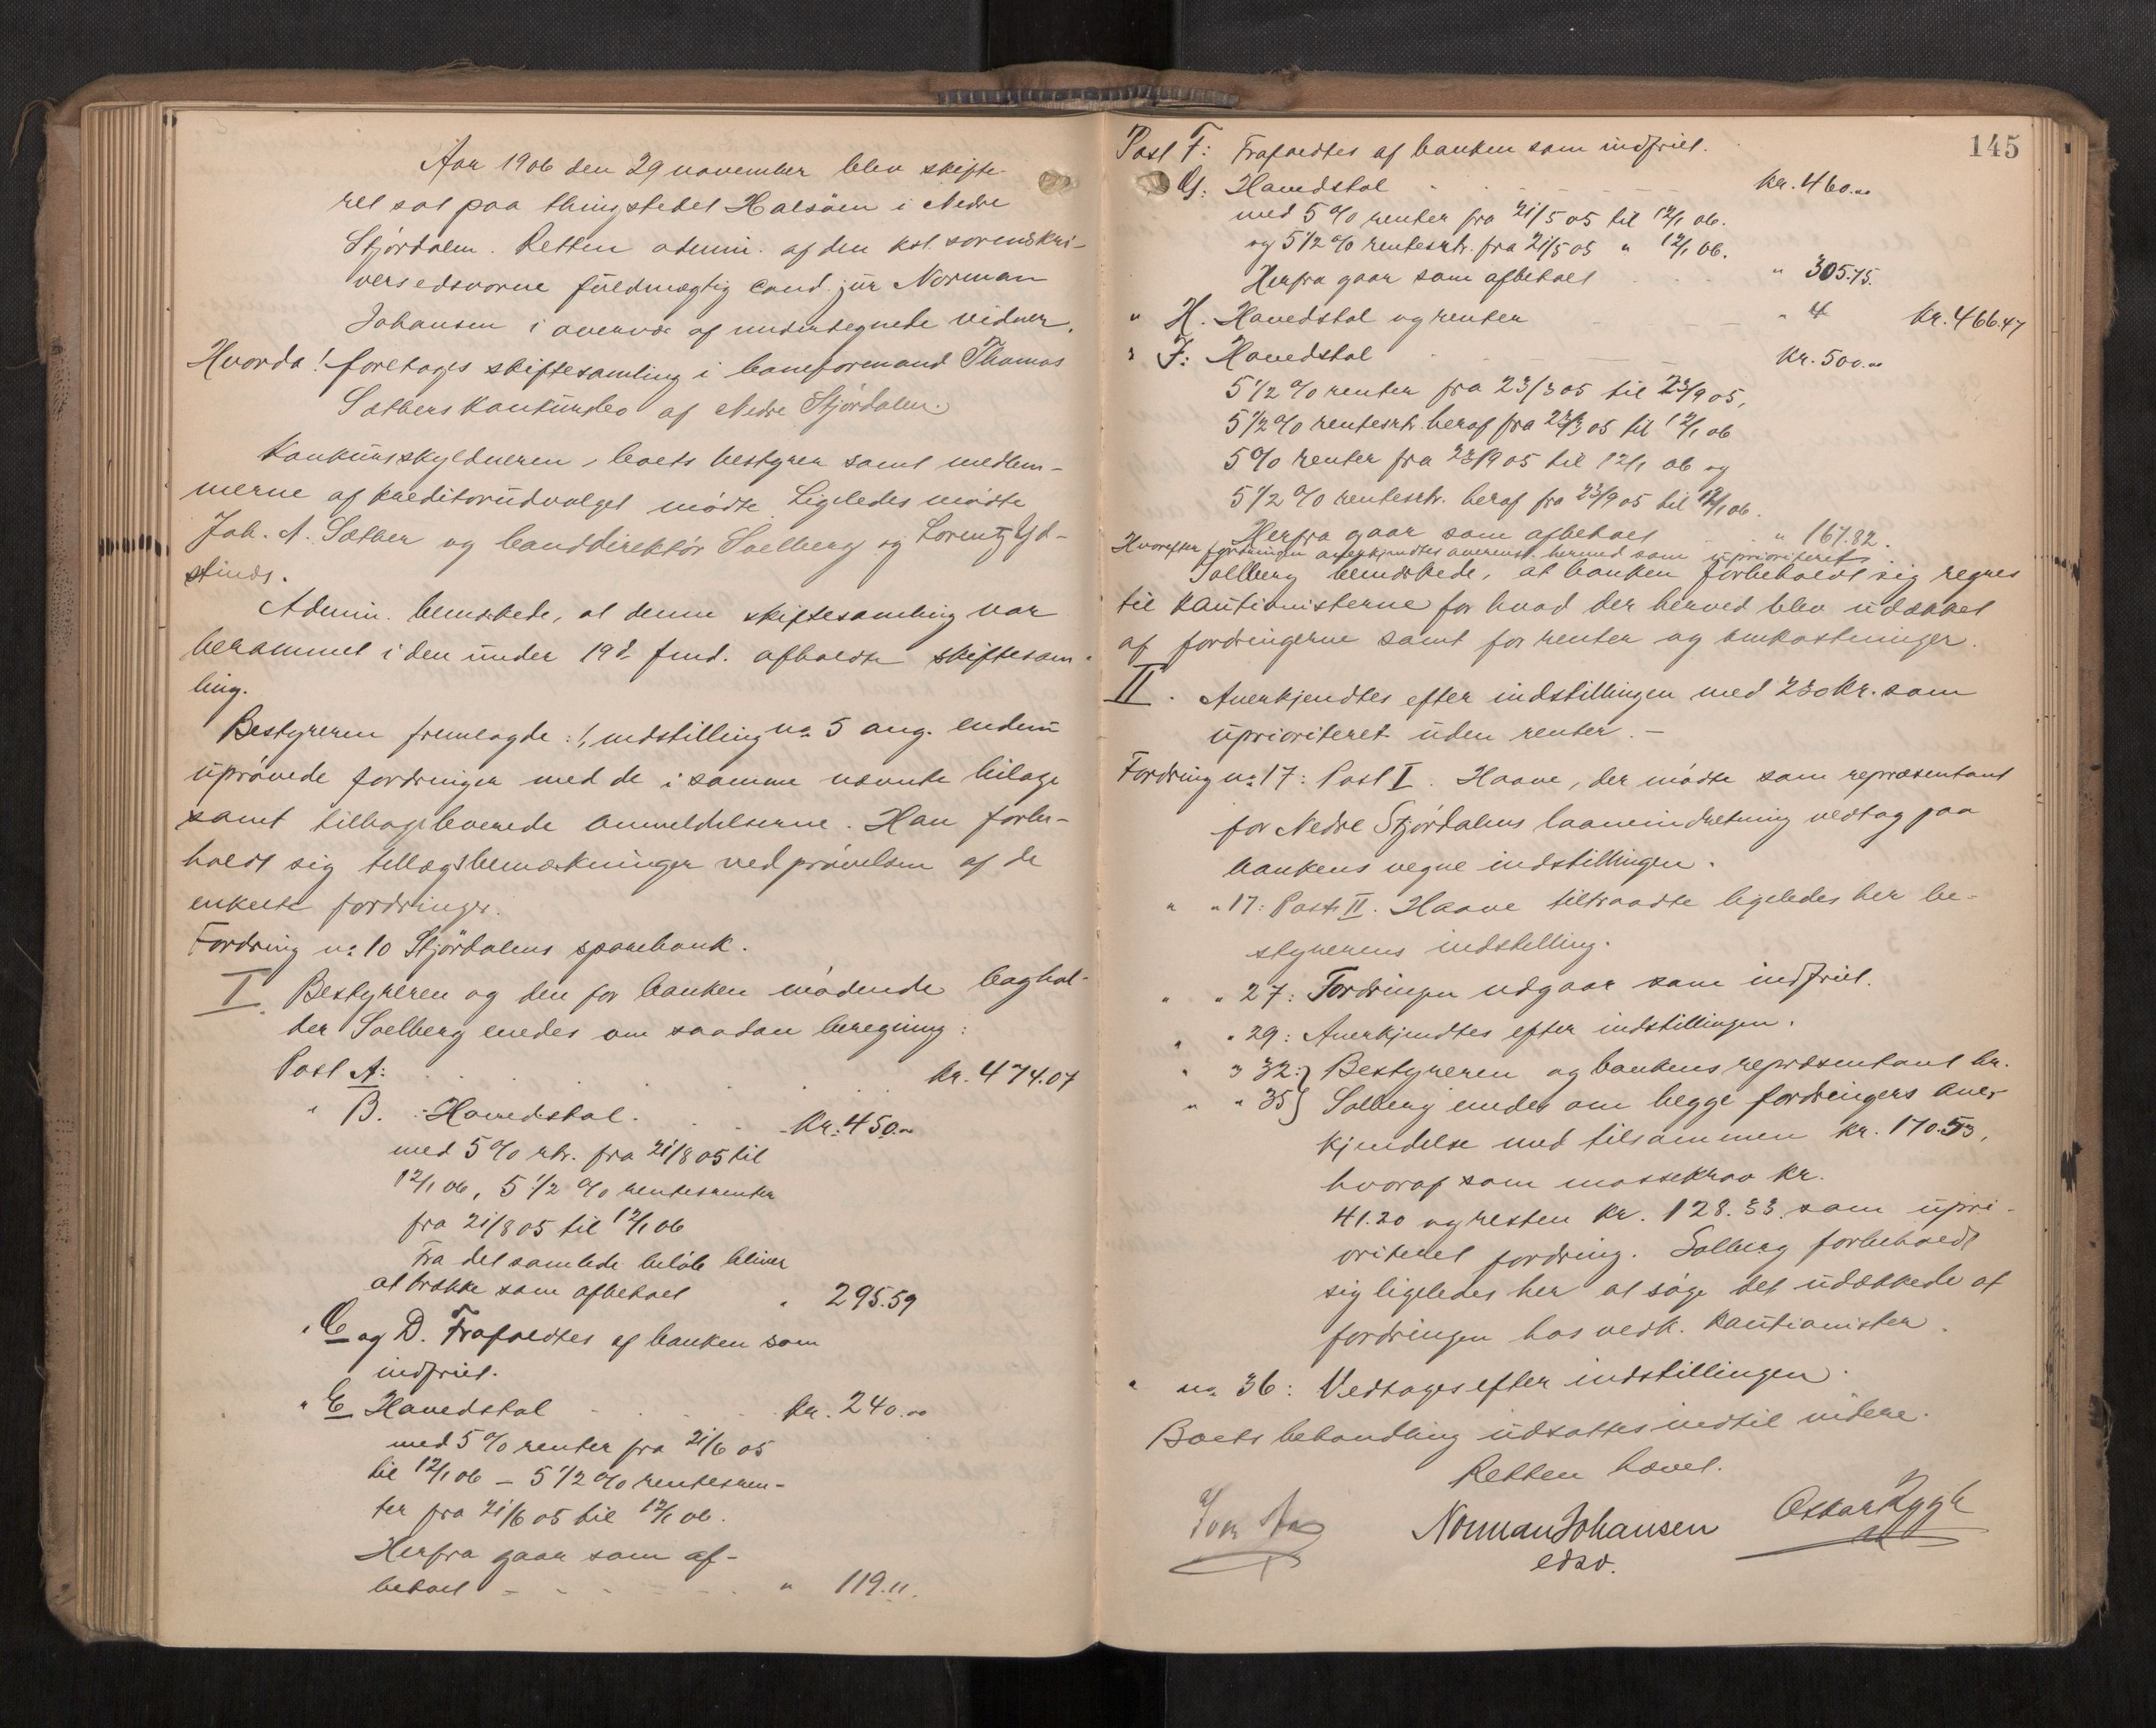 Aar 1906 den 29 november blev skifte-
ret sat paa thingstedet Halsöen i Nedre
Stjördalen. Retten admin. af den kst. sorenskri-
versedsvorne fuldmægtig cand. jur Norman
Johansen i overvær af undertegnede vidner,
Hvorda! foretoges skiftesamling i baneformand Thomas
Sæthers konkursbo af Nedre Stjördalen.
Konkursskyldneren, boets bestyrer samt medlem-
merne af kreditorudvalget mödte. Ligeledes mödte
Joh. A. Sæther og banddirektör Solberg og Lorentz Yt-
stinds.
Admin. bemærkede, at denne skiftesamling var
berammet i den under 19d. fmd. afholdte skiftesam-
ling.
Bestyreren fremlagde: !, indstilling no 5 ang. endnu
uprövede fordringer med de i samme nævnte bilage
samt tilbageleverede anmeldelserne. Han forbe-
holdt sig tillægsbemærkninger ved prövelsen af de
enkelte fordringer.
Fordring no 10 Stjördalens sparebank.
I. Bestyreren og den for banken mödende boghol-
der Solberg enedes om saadan beregning:
Post A: kr. 474.07
" B. Hovedstol. kr. 450.00
med 5 % rtr. fra 21/8 05 til
12/1 06, 5 1/2 % rentesrenter
fra 21/8 05 til 12/1 06
Fra det samlede belöb bliver
at trække som afbetalt " 295.59
" C og D. Frafaldtes af banken som
indfriet.
" E Hovedstol kr. 240.00
med 5 % renter fra 21/6 05
til 12/1 06 – 5 1/2 % rentesren-
ter fra 21/6 05 til 12/1 06.
Herfra gaar som af-
betalt " 119.11.
145
Post F: Frafaldtes af banken som indfriet.
" G. Hovedstol kr. 460.00
med 5 % renter fra 21/5 05 til 12/1 06.
og 5 1/2 % rentesrtr. fra 21/5 05 " 12/1 06.
Herfra gaar som afbetalt " 305.75.
" H. Hovedstol og renter " kr. 466.47
" I: Hovedstol kr. 500.00
5 1/2 % renter fra 23/3 05 til 23/9 05,
5 1/2 % rentesrtr. heraf fra 23/3 05 til 12/1 06
5 % renter fra 23/9 05 til 12/1 06 og
5 1/2 % rentesrtr. heraf fra 23/9 05 til 12/1 06.
Herfra gaar som afbetalt " 167.82.
Hvorefter fordringen anerkjendtes overenst. hermed som uprioriteret.
Solberg bemærkede, at banken forbeholdt sig regres
til kautionisterne for hvad der herved blev udækket
af fordringerne samt for renter og omkostninger.
II. Anerkjendtes efter indstillingen med 230 kr. som
uprioriteret uden renter. –
Fordring no 17: Post I. Haave, der mödte som repræsentant
for Nedre Stjördalens laaneindretning vedtog paa
bankens vegne indstillingen.
" " 17: Post II. Haave tiltraadte ligeledes her be-
styrerens indstilling.
" " 27: Fordringen udgaar som indfriet.
" " 29: Anerkjendtes efter indstillingen.
" " 32:} Bestyreren og bankens repræsentant hr.
" " 35} Solberg enedes om begge fordringers aner-
kjendelse med tilsammen kr. 170.53,
hvoraf som massekrav kr.
41.20 og resten kr. 128.33 som upri-
oriteret fordring. Solberg forbeholdt
sig ligeledes her at söge det udækkede af
fordringen hos vedk. kautionister.
" no 36: Vedtages efter indstillingen.
Boets behandling udsattes indtil videre.
Retten hævet.
Norman Johansen Oskar Rygh
edsv.